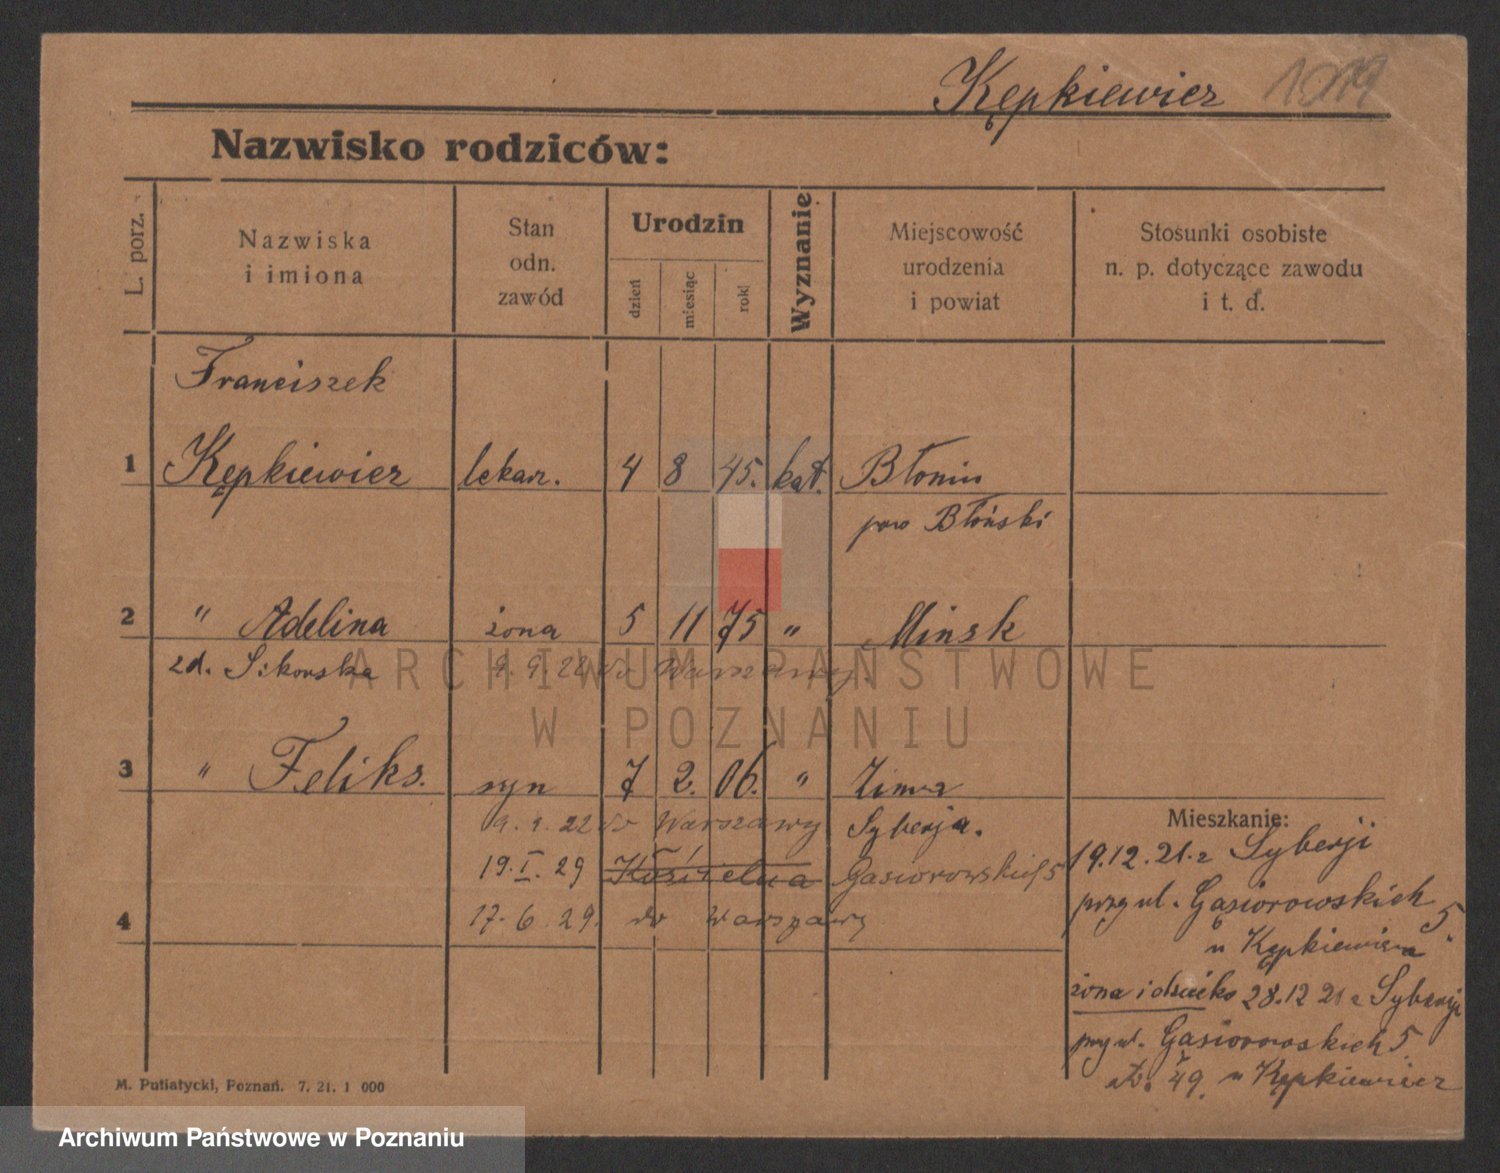 Kępkiewicz 1019
Nazwisko rodziców:
L. porz.
Nazwiska
i imiona
Stan
odn.
zawód
Urodzin
dzień
miesiąc
rok
Wyznanie
Miejscowość
urodzenia
i powiat
Stosunki osobiste
n. p. dotyczące zawodu
i t. d.
Franciszek
1 Kępkiewicz lekarz. 4 8 45. kat. Błoniu
pow Błoński
2 " Adelina żona 5 11 75 " Mińsk
zd. Sikorska 9. 9. 22 do Warszawy.
3 " Feliks. syn 7 2. 06. " Zima
9. 9. 22 do Warszawy Syberja.
19. I. 29 Kościelna Gąsiorowskich 5
4 17. 6. 29. do Warszawy
Mieszkanie:
19.12.21. z Syberji
przy ul. Gąsiorowskich 5.
u Kępkiewicza
żona i dziecko 28.12 21 z Syberji
przy ul. Gąsiorowskich 5
49. u Kępkiewicz
M. Putiatycki, Poznań. 7. 21. 1 000
ARCHIWUM PAŃSTWOWE
W POZNANIU
Archiwum Państwowe w Poznaniu